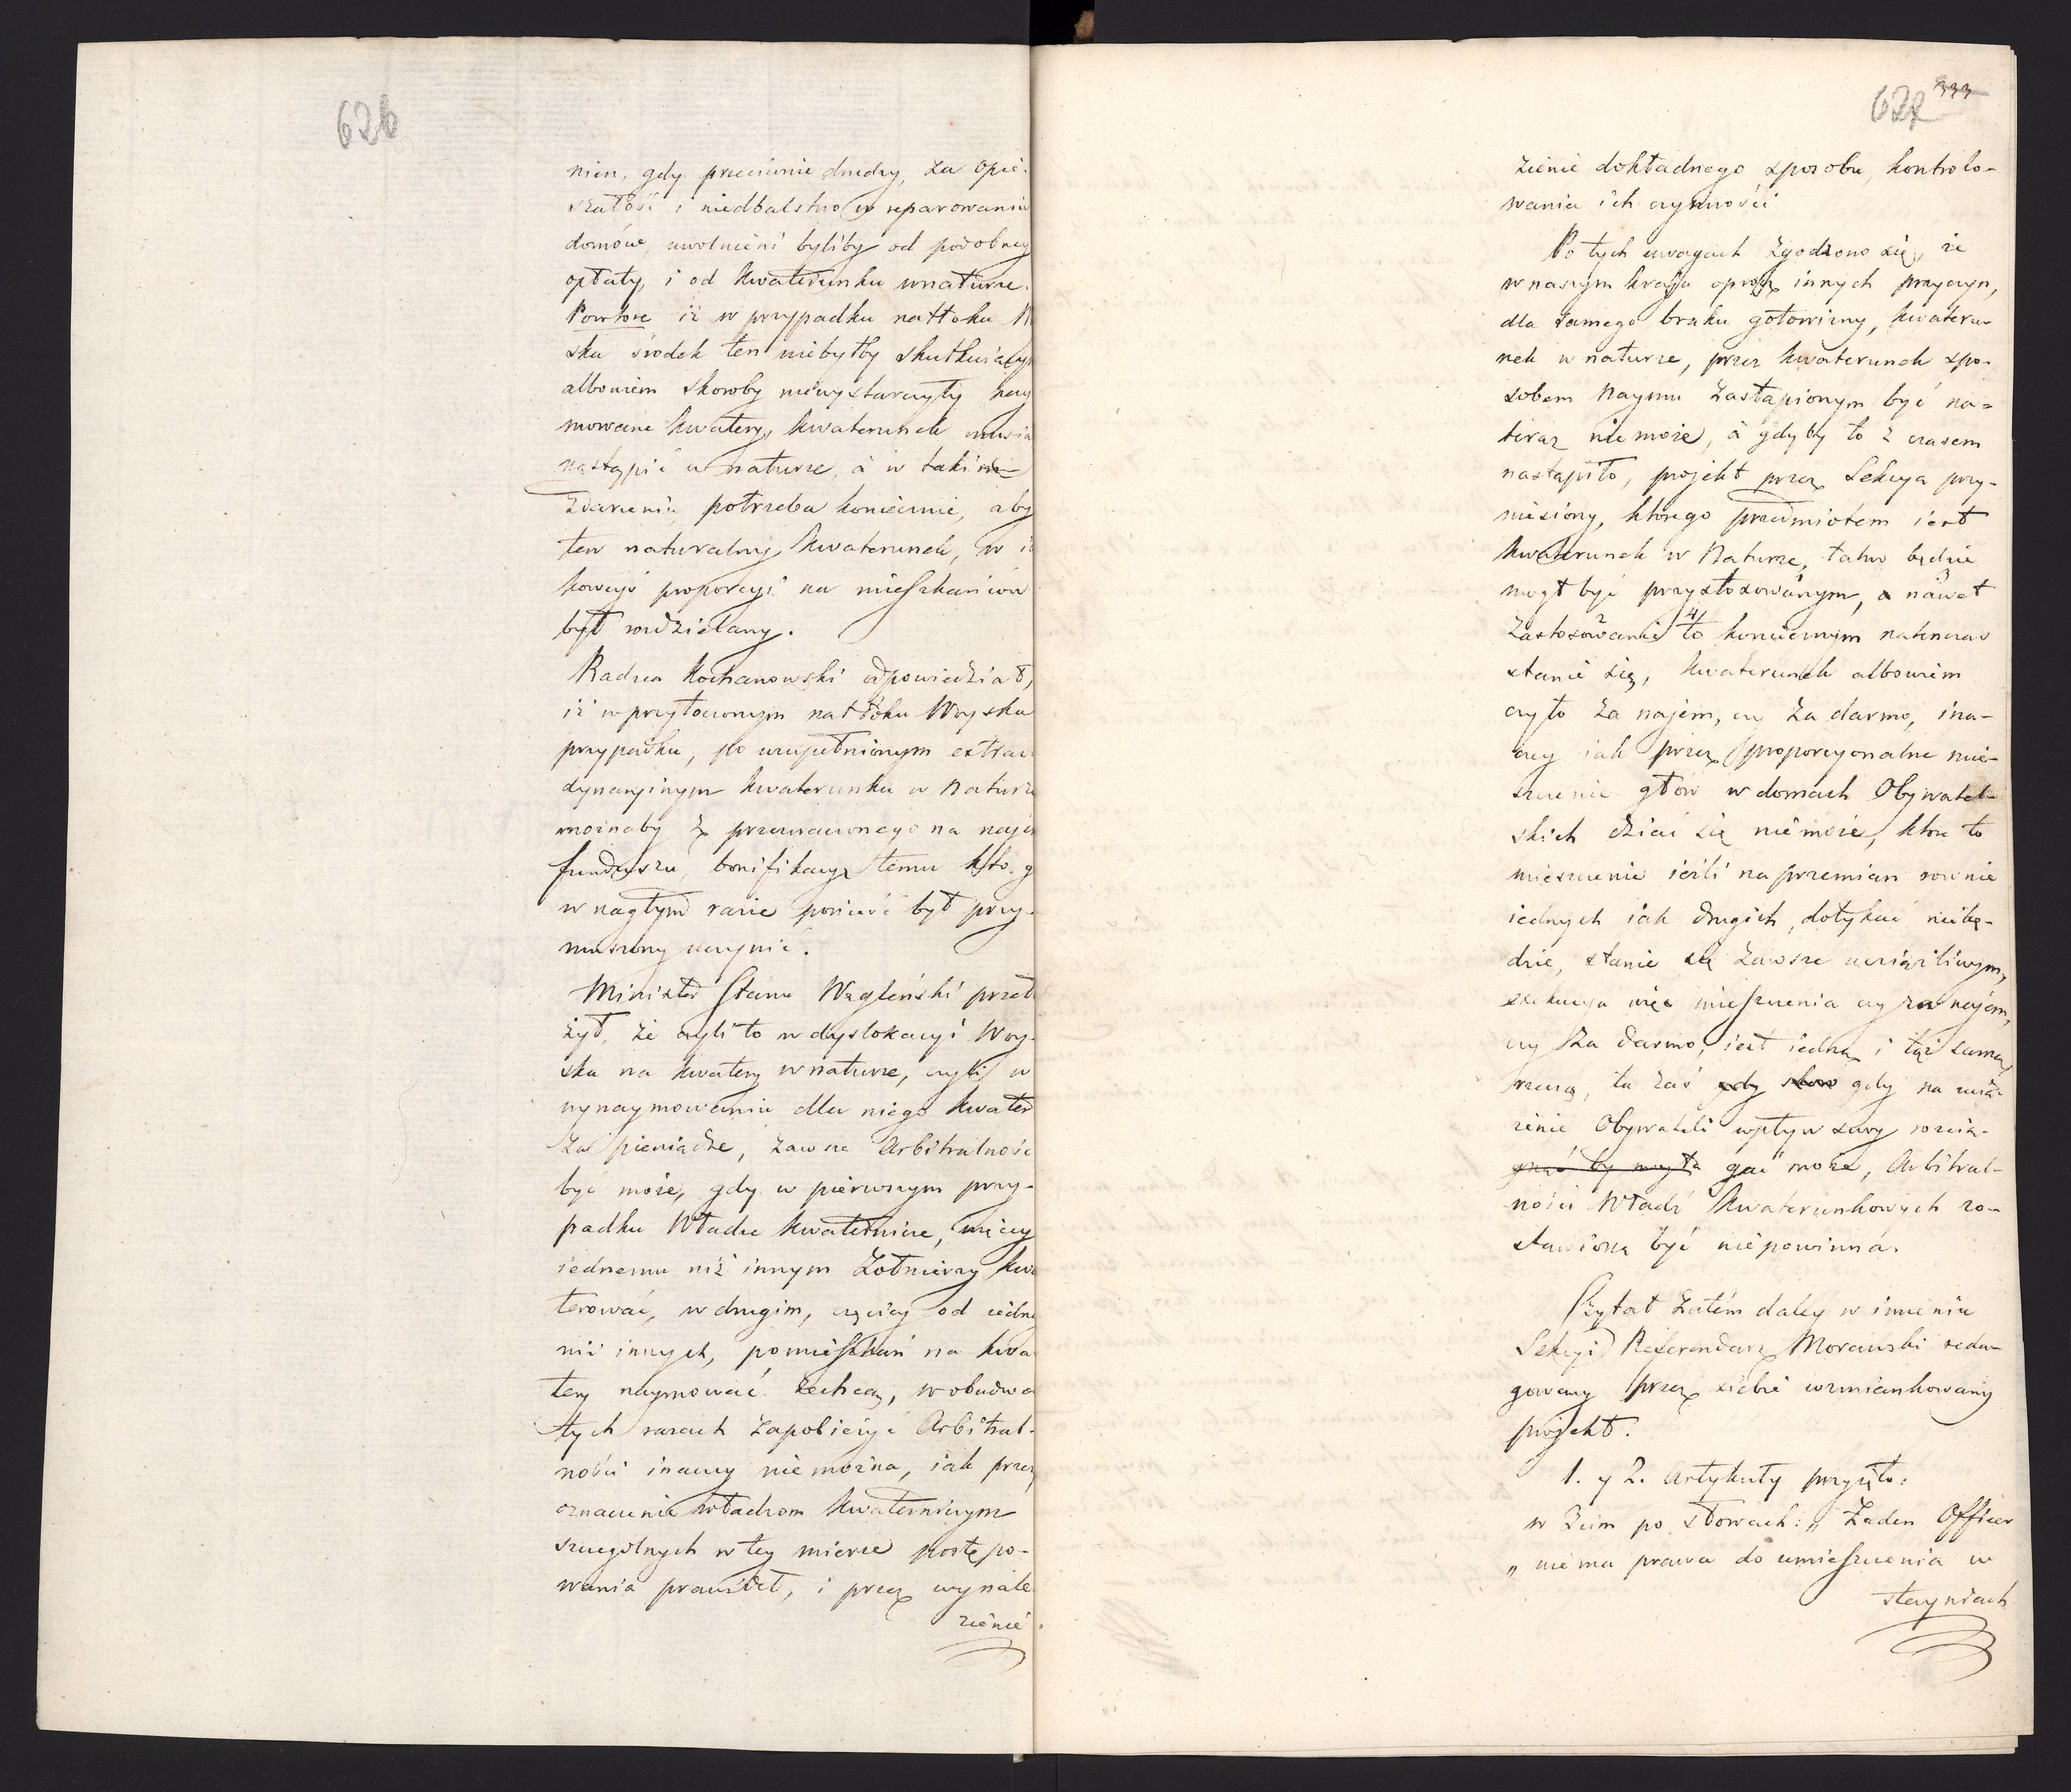 626
nien, gdy przeciwnie drudzy, za opie-
szałość i niedbalstwo w reparowaniu
domów, uwolnieni byliby od podobney
opłaty, i od kwaterunku wnaturze.
Powtore iż w przypadku natłoku W
ska środek ten niebyłby skutkuiącym
albowiem skoroby niewystarczyły nay
mowane kwatery, kwaterunek musia
nastąpić w naturze, à w takim
zdarzeniu potrzeba koniecznie, aby
ten naturalny kwaterunek, w ia
kowejś proporcyi na mieszkańców
był rozdzielany.
Radzca Kochanowski odpowiedział,
iż wprzytoczonym natłoku Woyska
przypadku, po uzupełnionym extraor
dynaryinym kwaterunku w Naturze
możnaby z przeznaczonego na najem
funduszu, bonifikacyą temu kto g
w nagłym razie ponieść był przy-
muszony uczynić.
Minister Stanu Węgleński przeło
żył, że czyli to w dyslokacyi Woy-
ska na kwatery wnaturze, czyli w
wynaymowaniu dla niego kwater
za pieniądze, zawsze Arbitralność
być może, gdy w pierwszym przy-
padku Władze kwaternicze, więcey
iednemu niż innym Żołnierzy kwa
terować, w drugim, częściey od iedne
niż innych, pomieszkań na kwa
tery naymować zechcą, w obudwa
tych razach zapobieżyć Arbitral-
ności inaczey nie można, iak przez
oznaczenie władzom kwaterniczym
szczególnych w tey mierze postępo-
wania prawideł, i przez wynale
zienie
333
627
zienie dokładnego sposobu, kontrolo-
wania ich czynności
Po tych uwagach zgodzono się, że
w naszym kraju oprócz innych przyczyn,
dla samego braku gotowizny, kwateru-
nek w naturze, przez kwaterunek spo-
sobem Naymu zastąpionym być na-
teraz nie może, à gdyby to z czasem
nastąpiło, projekt przez Sekcya przy-
niesiony, którego przedmiotem iest
kwaterunek w Naturze, łatwo będzie
mógł być przystosowanym, a nawet
zastosowanie to koniecznym natenczas
stanie się, kwaterunek albowiem
czyto za najem, czy za darmo, ina-
czey iak przez proporcyonalne mie-
szczenie głów w domach Obywatel-
skich dziać się nie może, które to
mieszczenie ieżli na przemian równie
iednych iak drugich, dotykać niebę-
dzie, stanie się zawsze uciążliwym,
exekucya więc mieszczenia czy za najem,
czy za darmo, iest iedną i tąż samą
rzeczą, ta zaś gdy słowo gdy na ucią-
żenie Obywateli wpływ swóy rozcią-
gnąć by mogła gać może, Arbitral-
ności Władz kwaterunkowych zo-
stawioną być niepowinna.
Czytał zatém daley w imieniu
Sekcyi Referendarz Morawski reda-
gowany przez siebie wzmiankowany
projekt.
1. y 2. Artykuły przyięto:
w 3cim po słowach: „Żaden Officer
„ nie ma prawa do umieszczenia w
stayniach